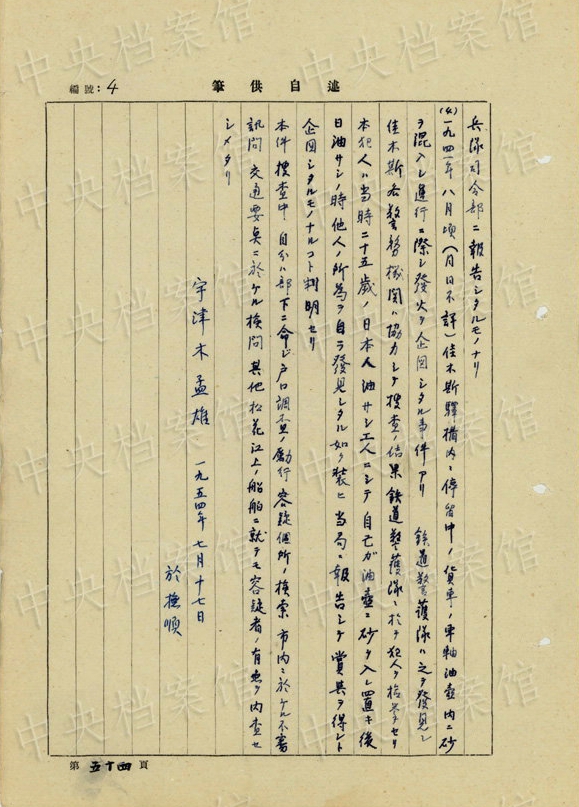 編號：4
述自供筆
兵隊司令部ニ報告シタルモノナリ
(4)一九四一年八月頃（月日不詳）佳木斯驛構内ニ停留中ノ貨車ノ車軸油壺内ニ砂
ヲ混入シ運行ニ際シ發火ヲ企図シタル事件アリ 鉄道警護隊ハ之ヲ發見シ
佳木斯各警務機関ハ協力シテ捜査ノ結果鉄道警護隊ニ於テ犯人ヲ検挙セリ
本犯人ハ当時二十五歳ノ日本人油サシ工人ニシテ自己ガ油壺ニ砂ヲ入レ置キ後
日油サシノ時他人ノ所為ヲ自ラ發見シタル如ク装ヒ当局ニ報告シテ賞与ヲ得ント
企図シタルモノナルコト判明セリ
本件捜査中自分ハ部下ニ命ジ戸口調査ノ励行容疑個所ノ検索市内ニ於ケル不審
訊問交通要点ニ於ケル検問其他松花江上ノ船舶ニ就テモ容疑者ノ有無ヲ内査セ
シメタリ
宇津木孟雄 一九五四年七月十七日
於撫順
第五十四頁
中央档案馆